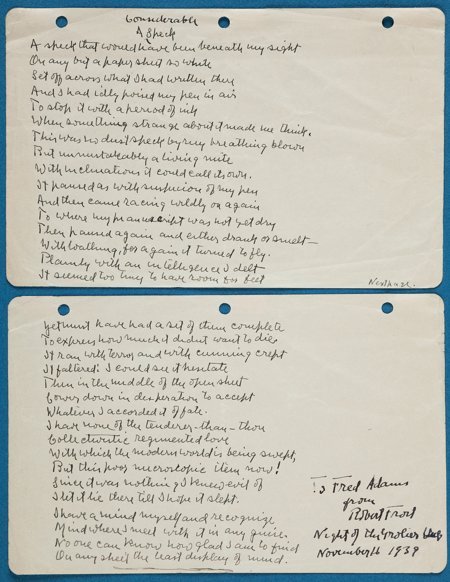 Considerable
A Speck
A speck that would have been beneath my sight
On any but a paper sheet so white
Set off across what I had written there
And I had idly poised my pen in air
To stop it with a period of ink
When something strange about it made me think.
This was no dust speck by my breathing blown
But unmistakeably a living mite
With inclinations it could call its own.
It paused as with suspicion of my pen
And then came racing wildly on again
To where my manuscript was not yet dry
Then paused again and either drank or smelt—
With loathing, for again it turned to fly.
Plainly with an intelligence I delt
It seemed too tiny to have room for feet
Next page.
Yet must have had a set of them complete
To express how much it didnt want to die.
It ran with terror and with cunning crept
It faltered: I could see it hesitate
Then in the middle of the open sheet
Cower down in desperation to accept
Whatever I accorded it of fate.
I have none of the tenderer-than-thou
Collectivistic regimented love
With which the modern world is being swept,
But this poor microscopic item now!
Since it was nothing I knew evil of
I let it lie there till I hope it slept.
I have a mind myself and recognize
Mind where I meet with it in any guise.
No one can know how glad I am to find
On any sheet the least display of mind.
To Fred Adams
from
Robert Frost
Night of the Grolier Club
November 16 1939